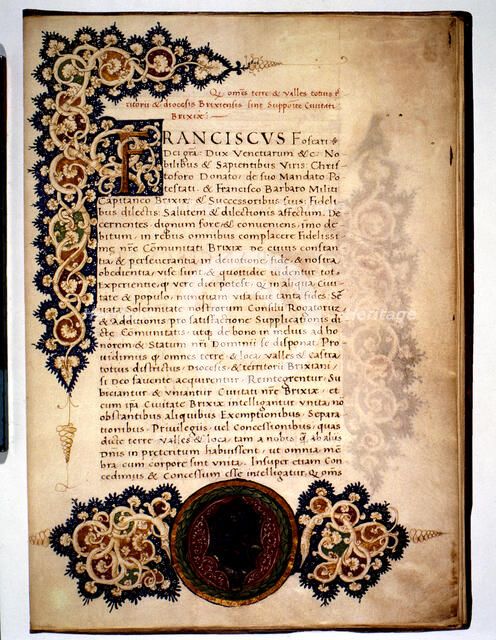 Q omēs terre & valles totius t̄
ritorii & diocesis Brixiensis sint Supposite Civitati
Brixie:
FRANCISCVS Foscari
Dei gra: Dux Venetiarum &c: No
bilibus & Sapientibus Viris: Chris
toforo Donato: de suo Mandato Po
testati: & Francisco Barbaro Militi
Capitaneo Brixie: & Successoribus suis: Fideli
bus dilectis: Salutem & dilectionis affectum. De
cernentes: dignum fore: & conveniens, imo de
bitum, in rebus omnibus complacere Fidelissi
me nre Comunitati Brixie: de cuius constan
tia, & perseverantia, in devotione, fide, & nostra
obedientia, vise sunt, & quottidie videntur tot
Experientie, q vere dici potest: Q in aliqua civi
tate & populo, nunquam visa fuit tanta fides. Se
uata Solemnitate nostrorum Consilii Rogatorum
& additionis pro satisfactione Supplicationis di
cte Comunitatis: utq de bono in melius ad ho
norem & Statum nri Dominii se disponat: Pro
vidimus q omnes terre & loca, valles & castra
totius districtus, Diocesis & territorii Brixiani,
si Deo favente acquirentur, Reintegrentur, Su
biciantur & vniantur Civitati nre Brixie: et
cum ipa Civitate Brixie intelligantur vnita, nō
obstantibus aliquibus Exemptionibus, Separa
tionibus, Privilegiis, vel Concessionibus, quas
dicte terre, valles & loca, tam a nobis q ab aliis
Dnis in preteritum habuissent, ut omnia me
bra cum corpore sint vnita. Insuper etiam Con
cedimus & Concessum esse intelligatur, Q omēs
Heritage